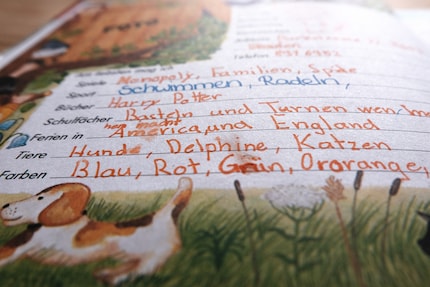 FOTO
Telefon
Spiele Monopoly, Familien, Spiele
Sport Schwimmen, Radeln,
Bücher Harry Potter
Schulfächer Basteln und Turnen wen
man macht
Ferien in America, und England
Tiere Hunde, Delphine, Katzen
Farben Blau, Rot, Grün, Ororange,